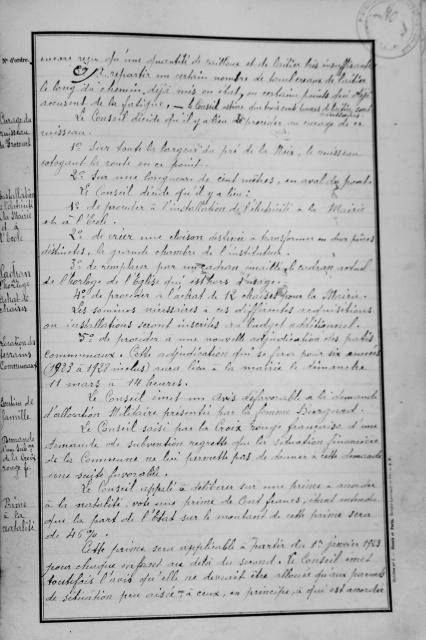 encore reçu qu'une quantité de cailloux et de laitier très insuffisante
répartir un certain nombre de tombereaux de laitier
le long du chemin, déjà mis en état, en certains points qui déjà
accusent de la fatigue. — Le Conseil estime que tombereaux de laitier sont nécessaires
Curage du ruisseau
Le Conseil décide qu'il y a lieu de procéder au curage de ce
ruisseau.
1° Sur toute la largeur du pré de la Noix, le ruisseau
cotoyant la route en ce point.
2° Sur une longueur de cent mètres, en aval du pont.
Installation de l'électricité à la Mairie et à l'Ecole
Le Conseil décide qu'il y a lieu :
1° de procéder à l'installation de l'électricité à la Mairie
et à l'Ecole.
2° de créer une cloison destinée à transformer en deux pièces
distinctes, la grande chambre de l'instituteur.
Cadran de l'horloge
achat de chaises
3° de remplacer par un cadran émaillé, le cadran actuel
de l'horloge de l'Eglise qui est hors d'usage.
4° de procéder à l'achat de 12 chaises pour la Mairie.
Les sommes nécessaires à ces différentes acquisitions
ou installations seront inscrites au budget additionnel.
Location des terrains Communaux
5° de procéder à une nouvelle adjudication des pâtis
communaux. Cette adjudication qui se fera pour six années
(1923 à 1928 inclus) aura lieu à la mairie le dimanche
11 mars à 14 heures.
Soutien de famille
Le Conseil émet un avis défavorable à la demande
d'allocation Militaire présentée par la femme
Demande d'une subon de la Croix rouge fse
Le Conseil saisi par la Croix Rouge française d'une
demande de subvention regrette que la situation financière
de la Commune ne lui permette pas de donner à cette demande
une suite favorable.
Prime à la natalité
Le Conseil appelé à délibérer sur une prime à accorder
à la natalité, vote une prime de Cent francs, étant entendu
que la part de l'Etat sur le montant de cette prime sera
de 46%.
Cette prime sera applicable à partir du 1er janvier 1923
pour chaque enfant au delà du second. Le Conseil émet
toutefois l'avis qu'elle ne devrait être allouée qu'aux parents
de situation peu aisée et à ceux, en principe, à qui est accordée